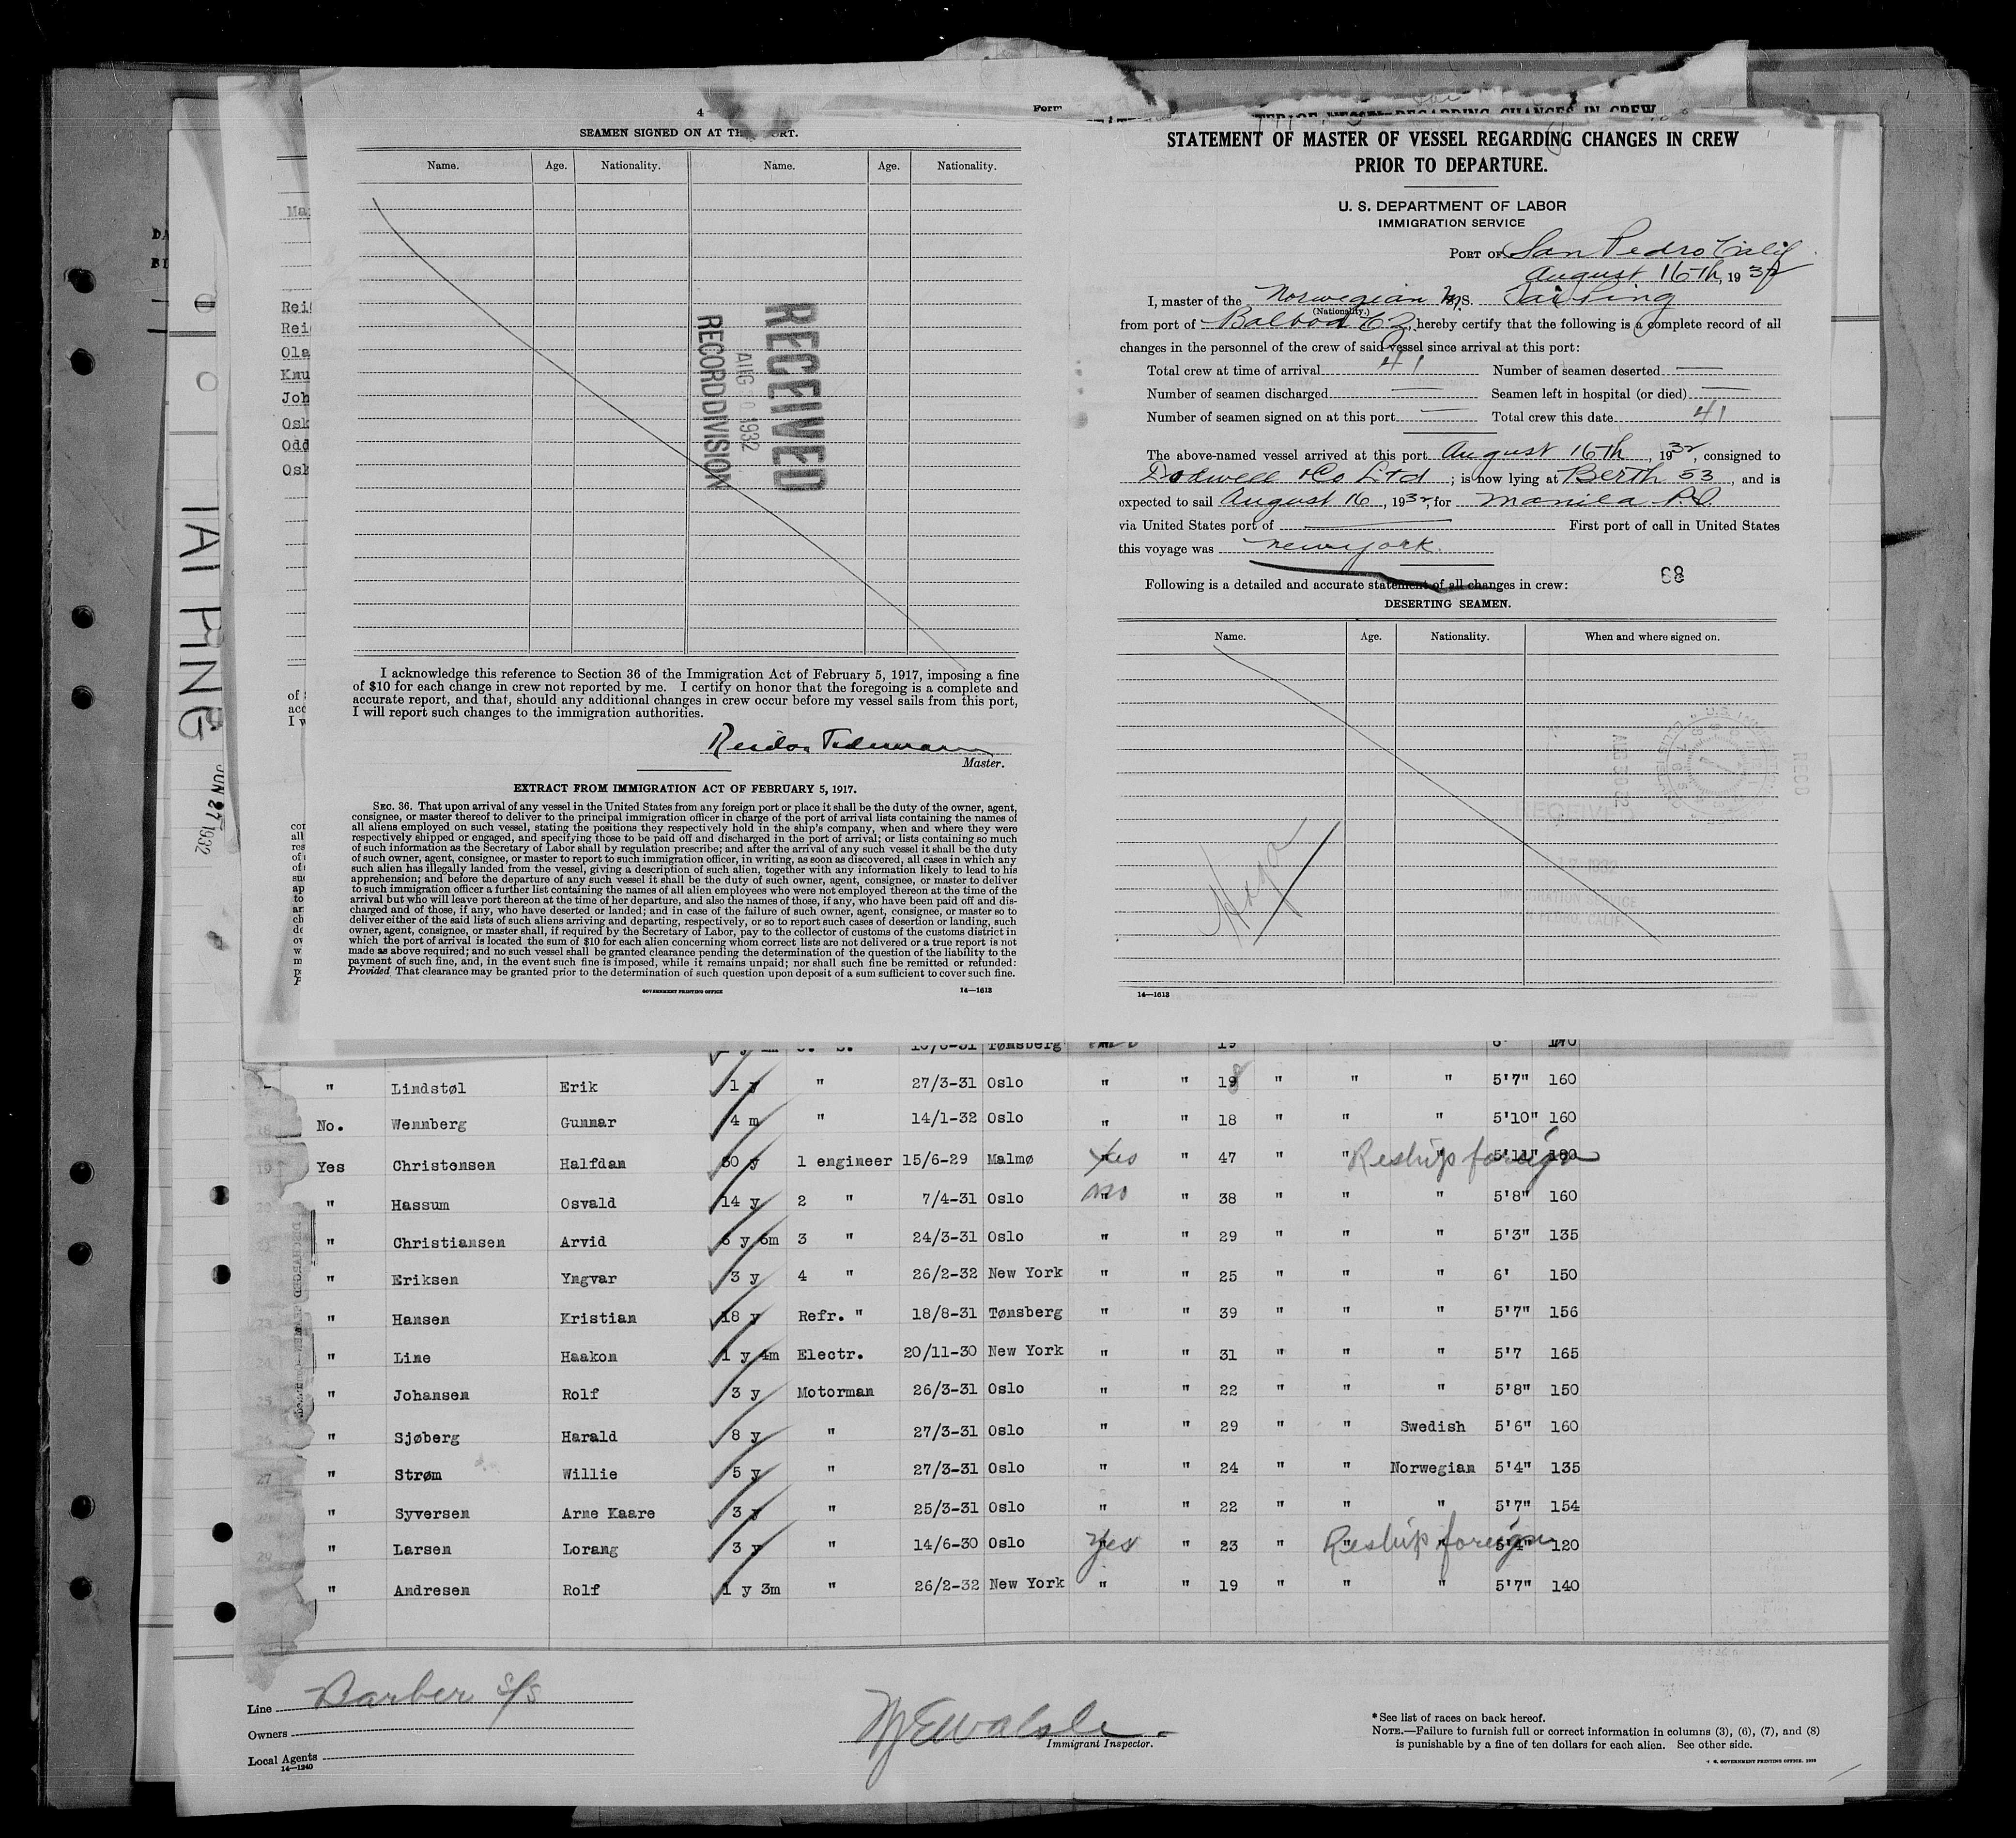 4
SEAMEN SIGNED ON AT TH PORT.
Name. Age. Nationality. Name. Age. Nationality.
RECEIVED
AUG 1932
RECORD DIVISION
I acknowledge this reference to Section 36 of the Immigration Act of February 5, 1917, imposing a fine
of $10 for each change in crew not reported by me. I certify on honor that the foregoing is a complete and
accurate report, and that, should any additional changes in crew occur before my vessel sails from this port,
I will report such changes to the immigration authorities.
Master.
EXTRACT FROM IMMIGRATION ACT OF FEBRUARY 5, 1917.
SEC. 36. That upon arrival of any vessel in the United States from any foreign port or place it shall be the duty of the owner, agent,
consignee, or master thereof to deliver to the principal immigration officer in charge of the port of arrival lists containing the names of
all aliens employed on such vessel, stating the positions they respectively hold in the ship's company, when and where they were
respectively shipped or engaged, and specifying those to be paid off and discharged in the port of arrival; or lists containing so much
of such information as the Secretary of Labor shall by regulation prescribe; and after the arrival of any such vessel it shall be the duty
of such owner, agent, consignee, or master to report to such immigration officer, in writing, as soon as discovered, all cases in which any
such alien has illegally landed from the vessel, giving a description of such alien, together with any information likely to lead to his
apprehension; and before the departure of any such vessel it shall be the duty of such owner, agent, consignee, or master to deliver
to such immigration officer a further list containing the names of all alien employees who were not employed thereon at the time of the
arrival but who will leave port thereon at the time of her departure, and also the names of those, if any, who have been paid off and dis-
charged and of those, if any, who have deserted or landed; and in case of the failure of such owner, agent, consignee, or master so to
deliver either of the said lists of such aliens arriving and departing, respectively, or so to report such cases of desertion or landing, such
owner, agent, consignee, or master shall, if required by the Secretary of Labor, pay to the collector of customs of the customs district in
which the port of arrival is located the sum of $10 for each alien concerning whom correct lists are not delivered or a true report is not
made as above required; and no such vessel shall be granted clearance pending the determination of the question of the liability to the
payment of such fine, and, in the event such fine is imposed, while it remains unpaid; nor shall such fine be remitted or refunded:
Provided That clearance may be granted prior to the determination of such question upon deposit of a sum sufficient to cover such fine.
GOVERNMENT PRINTING OFFICE 14—1613
Form
STATEMENT OF MASTER OF VESSEL REGARDING CHANGES IN CREW
PRIOR TO DEPARTURE.
U. S. DEPARTMENT OF LABOR
IMMIGRATION SERVICE
PORT OF San Pedro Calif
August 16th, 1932
I, master of the Norwegian M.S. Tai Ping
(Nationality.)
from port of Balboa CZ, hereby certify that the following is a complete record of all
changes in the personnel of the crew of said vessel since arrival at this port:
Total crew at time of arrival 41 Number of seamen deserted —
Number of seamen discharged — Seamen left in hospital (or died) —
Number of seamen signed on at this port — Total crew this date 41
The above-named vessel arrived at this port August 16th, 1932, consigned to
Dodwell & Co Ltd; is now lying at Berth 53, and is
expected to sail August 16, 1932, for Manila P.I.
via United States port of — First port of call in United States
this voyage was New York.
68
Following is a detailed and accurate statement of all changes in crew:
DESERTING SEAMEN.
Name. Age. Nationality. When and where signed on.
RECEIVED
1932
IMMIGRATION SERVICE
CALIF.
14—1613
TAI PING
JUN 27 1932
Rei
Rei
Ola
Knu
Joh
Osk
Odd
Osk
Tønsberg 19 6' 170
" Lindstøl Erik 1 y " 27/3-31 Oslo " " 19 8 " " " 5'7" 160
No. Wennberg Gunnar 4 m " 14/1-32 Oslo " " 18 " " " 5'10" 160
19 Yes Christensen Halfdan 30 y 1 engineer 15/6-29 Malmø Yes " 47 " " Reship foreign 5'11" 180
" Hassum Osvald 14 y 2 " 7/4-31 Oslo no " 38 " " " 5'8" 160
" Christiansen Arvid 6 y 6m 3 " 24/3-31 Oslo " " 29 " " " 5'3" 135
" Eriksen Yngvar 3 y 4 " 26/2-32 New York " " 25 " " " 6' 150
" Hansen Kristian 18 y Refr. " 18/8-31 Tønsberg " " 39 " " " 5'7" 156
" Line Haakon 1 y 4m Electr. 20/11-30 New York " " 31 " " " 5'7 165
" Johansen Rolf 3 y Motorman 26/3-31 Oslo " " 22 " " " 5'8" 150
" Sjøberg Harald 8 y " 27/3-31 Oslo " " 29 " " Swedish 5'6" 160
27 " Strøm Willie 5 y " 27/3-31 Oslo " " 24 " " Norwegian 5'4" 135
" Syversen Arne Kaare 3 y " 25/3-31 Oslo " " 22 " " " 5'7" 154
" Larsen Lorang 3 y " 14/6-30 Oslo Yes " 23 " " Reship foreign 5'4" 120
" Andresen Rolf 1 y 3m " 26/2-32 New York " " 19 " " " 5'7" 140
Line Barber S/S
Owners
Local Agents
14—1240
Immigrant Inspector.
* See list of races on back hereof.
NOTE.—Failure to furnish full or correct information in columns (3), (6), (7), and (8)
is punishable by a fine of ten dollars for each alien. See other side.